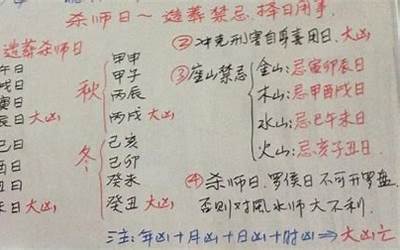 杀师日～造葬禁忌.择日用事.
造葬杀师日
午日
戌日
日
辰日大凶
秋
甲申
甲子
丙辰
丙戌大凶
巳日
酉日
日
未日大凶
冬
己亥
己卯
癸未
癸丑大凶
②冲克刑害自身喜用日.大凶
③座山禁忌
金山:忌寅卯辰日
木山:忌申酉戌日
水山:忌巳午未日
火山:忌亥子丑日.
④杀师日.罗侯日不可开罗盘.
否则对风水师大不利.
注:年凶+月凶+日凶+时凶⇒大凶亡